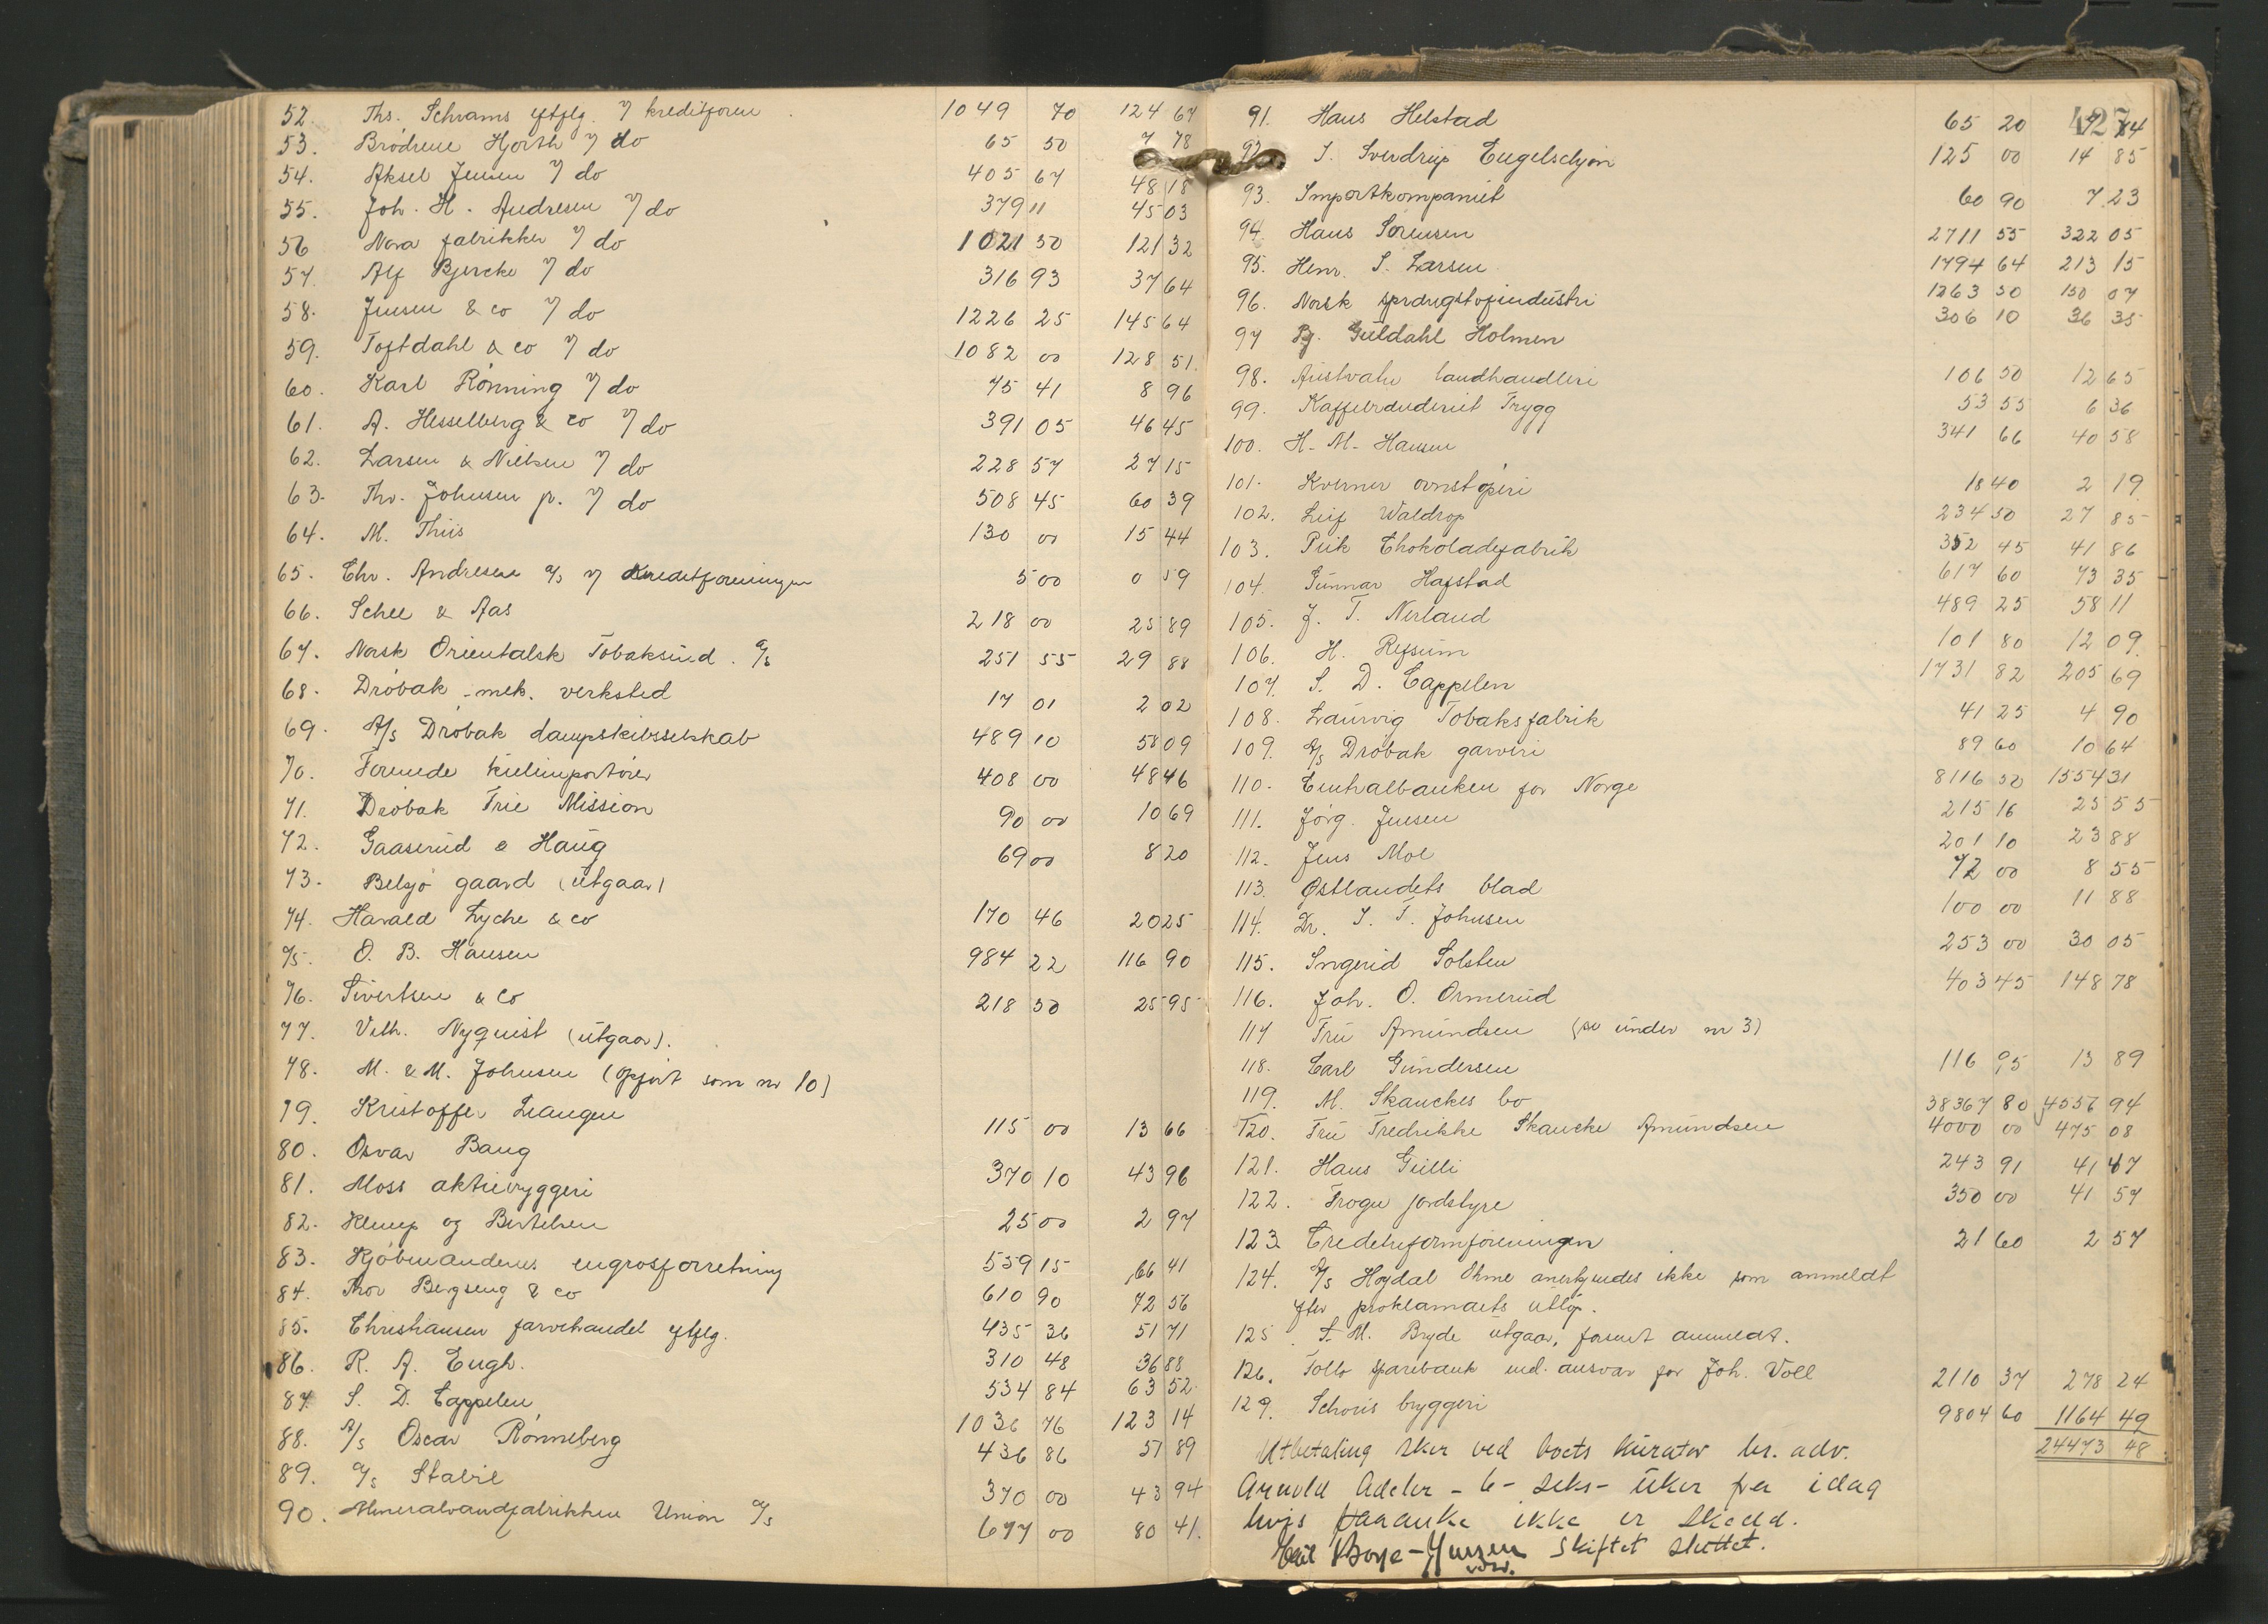 52. Ths. Schrams eftflg. v/ kreditforen 1049 70 124 67
53. Brødrene Hjorth v/ do 65 50 7 78
54. Aksel Jensen v/ do 405 67 48 18
55. Joh. H. Andresen v/ do 379 11 45 03
56 Nora fabrikker v/ do 1021 50 121 32
57. Alf Bjercke v/ do 316 93 37 64
58. Jensen & co v/ do 1226 25 145 64
59. Toftdahl & co v/ do 1082 00 128 51.
60. Karl Rönning v/ do 75 41 8 96
61. A. Hesselberg & co v/ do 391 05 46 45
62. Larsen & Nielsen v/ do 228 57 27 15
63. Thv. Johnsen jr. v/ do 508 45 60 39
64. M. Thiis 130 00 15 44
65. Chr. Andresen A/s v/ Kreditforeningen 5 00 0 59
66. Schee & Aas 218 00 25 89
67. Norsk Orientalsk Tobaksind. A/s 251 55 29 88
68. Dröbak mek. verksted 17 01 2 02
69. A/s Dröbak dampskibsselskab 489 10 58 09
70. Forenede kulimportörer 408 00 48 46
71. Dröbak Frie Mission 90 00 10 69
72. Gaaserud & Haug 69 00 8 20
73. Belsjö gaard (utgaar)
74. Harald Lyche & co 170 46 20 25
75. O. B. Hansen 984 22 116 90
76. Sivertsen & Co 218 50 25 95
77. Vilh. Nyquist (utgaar).
78. M. & M. Johnsen (opfört som nr 10)
79. Kristoffer Leangen 115 00 13 66
80. Osvar Bang 370 10 43 96
81. Moss aktiebryggeri 25 00 2 97
82. Klemp og Bertelsen 559 15 66 41
83. Kjöbmandenes engrosforretning 610 90 72 56
84. Thor Bergseng & co 435 36 51 71
85. Christiansen farvehandel eftflg. 310 48 36 88
86. R. A. Engh. 534 84 63 52.
87. S. D. Cappelen 1036 76 123 14
88. A/s Oscar Rönneberg 436 86 51 89
89. A/s Stabil 370 00 43 94
90. Mineralvandfabrikken Union A/s 677 00 80 41.
427
91. Hans Helstad 65 20 7 74
92. S. Sverdrup Engelschjön 125 00 14 85
93. Importkompaniet 60 90 7 23
94. Hans Sörensen 2711 55 322 05
95. Henr. S. Larsen 1794 64 213 15
96. Norsk sprængstofindustri 1263 50 150 07
97 Bj. Guldahl Holmen 306 10 36 35
98. landhandleri 106 50 12 65
99. Kaffebrænderiet Trygg 53 55 6 36
100. H. M. Hansen 341 66 40 58
101. Kverner ovnstöperi 18 40 2 19
102. Leif Waldrop 234 50 27 85
103. Piik Chokoladefabrik 352 45 41 86
104. Gunnar Hafstad 617 60 73 35
105. J. T. Nerland 489 25 58 11
106. H. Refsum 101 80 12 09.
107. S. D. Cappelen 1731 82 205 69
108. Laurvig Tobaksfabrik 41 25 4 90
109. A/s Dröbak garveri 89 60 10 64
110. Centralbanken for Norge 8116 50 1554 31
111. Jörg. Jensen 215 16 25 55
112. Jens Moe 201 10 23 88
113. Østlandets blad 72 00 8 55
114. Dr. S. T. Johnsen 100 00 11 88
115. Ingerid Solsten 253 00 30 05
116. Joh. O. Ormerud 403 45 148 78
117 Fru Amundsen (se under nr 3)
118. Carl Gundersen 116 95 13 89
119. M. Skanckes bo 38367 80 4556 94
120. Fru Fredrikke Skancke Amundsen 4000 00 475 08
121. Hans Gulli 243 91 41 47
122. Frogn jordstyre 350 00 41 57
123 Creditreformforeningen 21 60 2 57
124. A/s Höydal Ohme anerkjendes ikke som anmeldt
efter proklamaets utlöp.
125. T. M. Bryde utgaar, forsent anmeldt.
126. Follo sparebank incl. ansvar for Joh. Voll 2110 37 278 24
129. Schous bryggeri 9804 60 1164 49
24473 48
Utbetaling sker ved boets kurator hr. adv.
Arnold Adeler - 6 - seks - uker fra idag
hvis paaanke ikke er skedd.
Skiftet sluttet.
Boye-Jensen